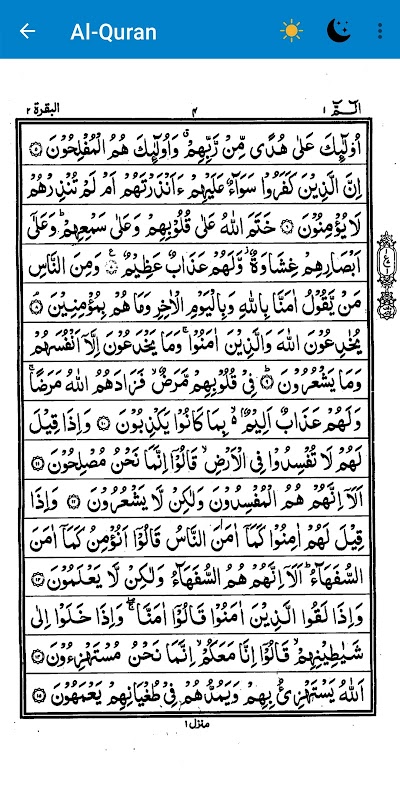 Al-Quran
الٓمّٓ ١
٣
البقرة ٢
اُولٰٓئِكَ عَلٰى هُدًى مِّنْ رَّبِّهِمْ ۙ وَاُولٰٓئِكَ هُمُ الْمُفْلِحُوْنَ ۝٥
اِنَّ الَّذِيْنَ كَفَرُوْا سَوَآءٌ عَلَيْهِمْ ءَاَنْذَرْتَهُمْ اَمْ لَمْ تُنْذِرْهُمْ
لَا يُؤْمِنُوْنَ ۝٦ خَتَمَ اللّٰهُ عَلٰى قُلُوْبِهِمْ وَعَلٰى سَمْعِهِمْ ؕ وَعَلٰٓى
اَبْصَارِهِمْ غِشَاوَةٌ ؗ وَّلَهُمْ عَذَابٌ عَظِيْمٌ ۝٧ وَمِنَ النَّاسِ
مَنْ يَّقُوْلُ اٰمَنَّا بِاللّٰهِ وَبِالْيَوْمِ الْاٰخِرِ وَمَا هُمْ بِمُؤْمِنِيْنَ ۝٨
يُخٰدِعُوْنَ اللّٰهَ وَالَّذِيْنَ اٰمَنُوْا ۚ وَمَا يَخْدَعُوْنَ اِلَّاۤ اَنْفُسَهُمْ
وَمَا يَشْعُرُوْنَ ۝٩ فِيْ قُلُوْبِهِمْ مَّرَضٌ ۙ فَزَادَهُمُ اللّٰهُ مَرَضًا ۚ
وَلَهُمْ عَذَابٌ اَلِيْمٌ ۢ ۙ بِمَا كَانُوْا يَكْذِبُوْنَ ۝١٠ وَاِذَا قِيْلَ
لَهُمْ لَا تُفْسِدُوْا فِى الْاَرْضِ ۙ قَالُوْۤا اِنَّمَا نَحْنُ مُصْلِحُوْنَ ۝١١
اَلَاۤ اِنَّهُمْ هُمُ الْمُفْسِدُوْنَ وَلٰكِنْ لَّا يَشْعُرُوْنَ ۝١٢ وَاِذَا
قِيْلَ لَهُمْ اٰمِنُوْا كَمَاۤ اٰمَنَ النَّاسُ قَالُوْۤا اَنُؤْمِنُ كَمَاۤ اٰمَنَ
السُّفَهَآءُ ؕ اَلَاۤ اِنَّهُمْ هُمُ السُّفَهَآءُ وَلٰكِنْ لَّا يَعْلَمُوْنَ ۝١٣
وَاِذَا لَقُوا الَّذِيْنَ اٰمَنُوْا قَالُوْۤا اٰمَنَّا ۖۚ وَاِذَا خَلَوْا اِلٰى
شَيٰطِيْنِهِمْ ۙ قَالُوْۤا اِنَّا مَعَكُمْ ۙ اِنَّمَا نَحْنُ مُسْتَهْزِءُوْنَ ۝١٤
اَللّٰهُ يَسْتَهْزِئُ بِهِمْ وَيَمُدُّهُمْ فِيْ طُغْيَانِهِمْ يَعْمَهُوْنَ ۝١٥
منزل ١